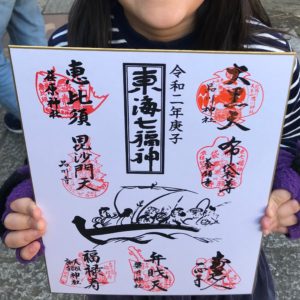 令和二年庚子
東海七福神
大黒天
品川神社
布袋尊
養願寺
寿老人
恵比須
荏原神社
毘沙門天
品川寺
福禄寿